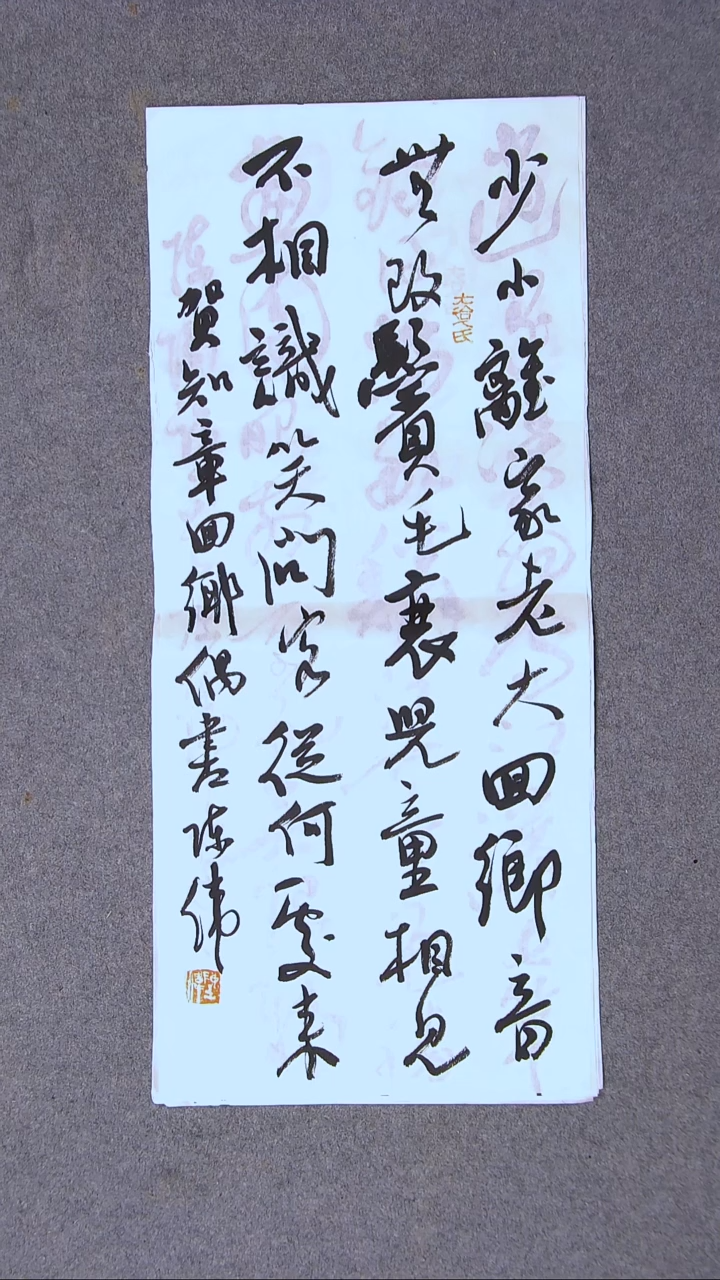 少小離家老大回鄉音
無改鬢毛衰児童相見
不相識笑問客從何處来
賀知章回鄉偶書陈伟